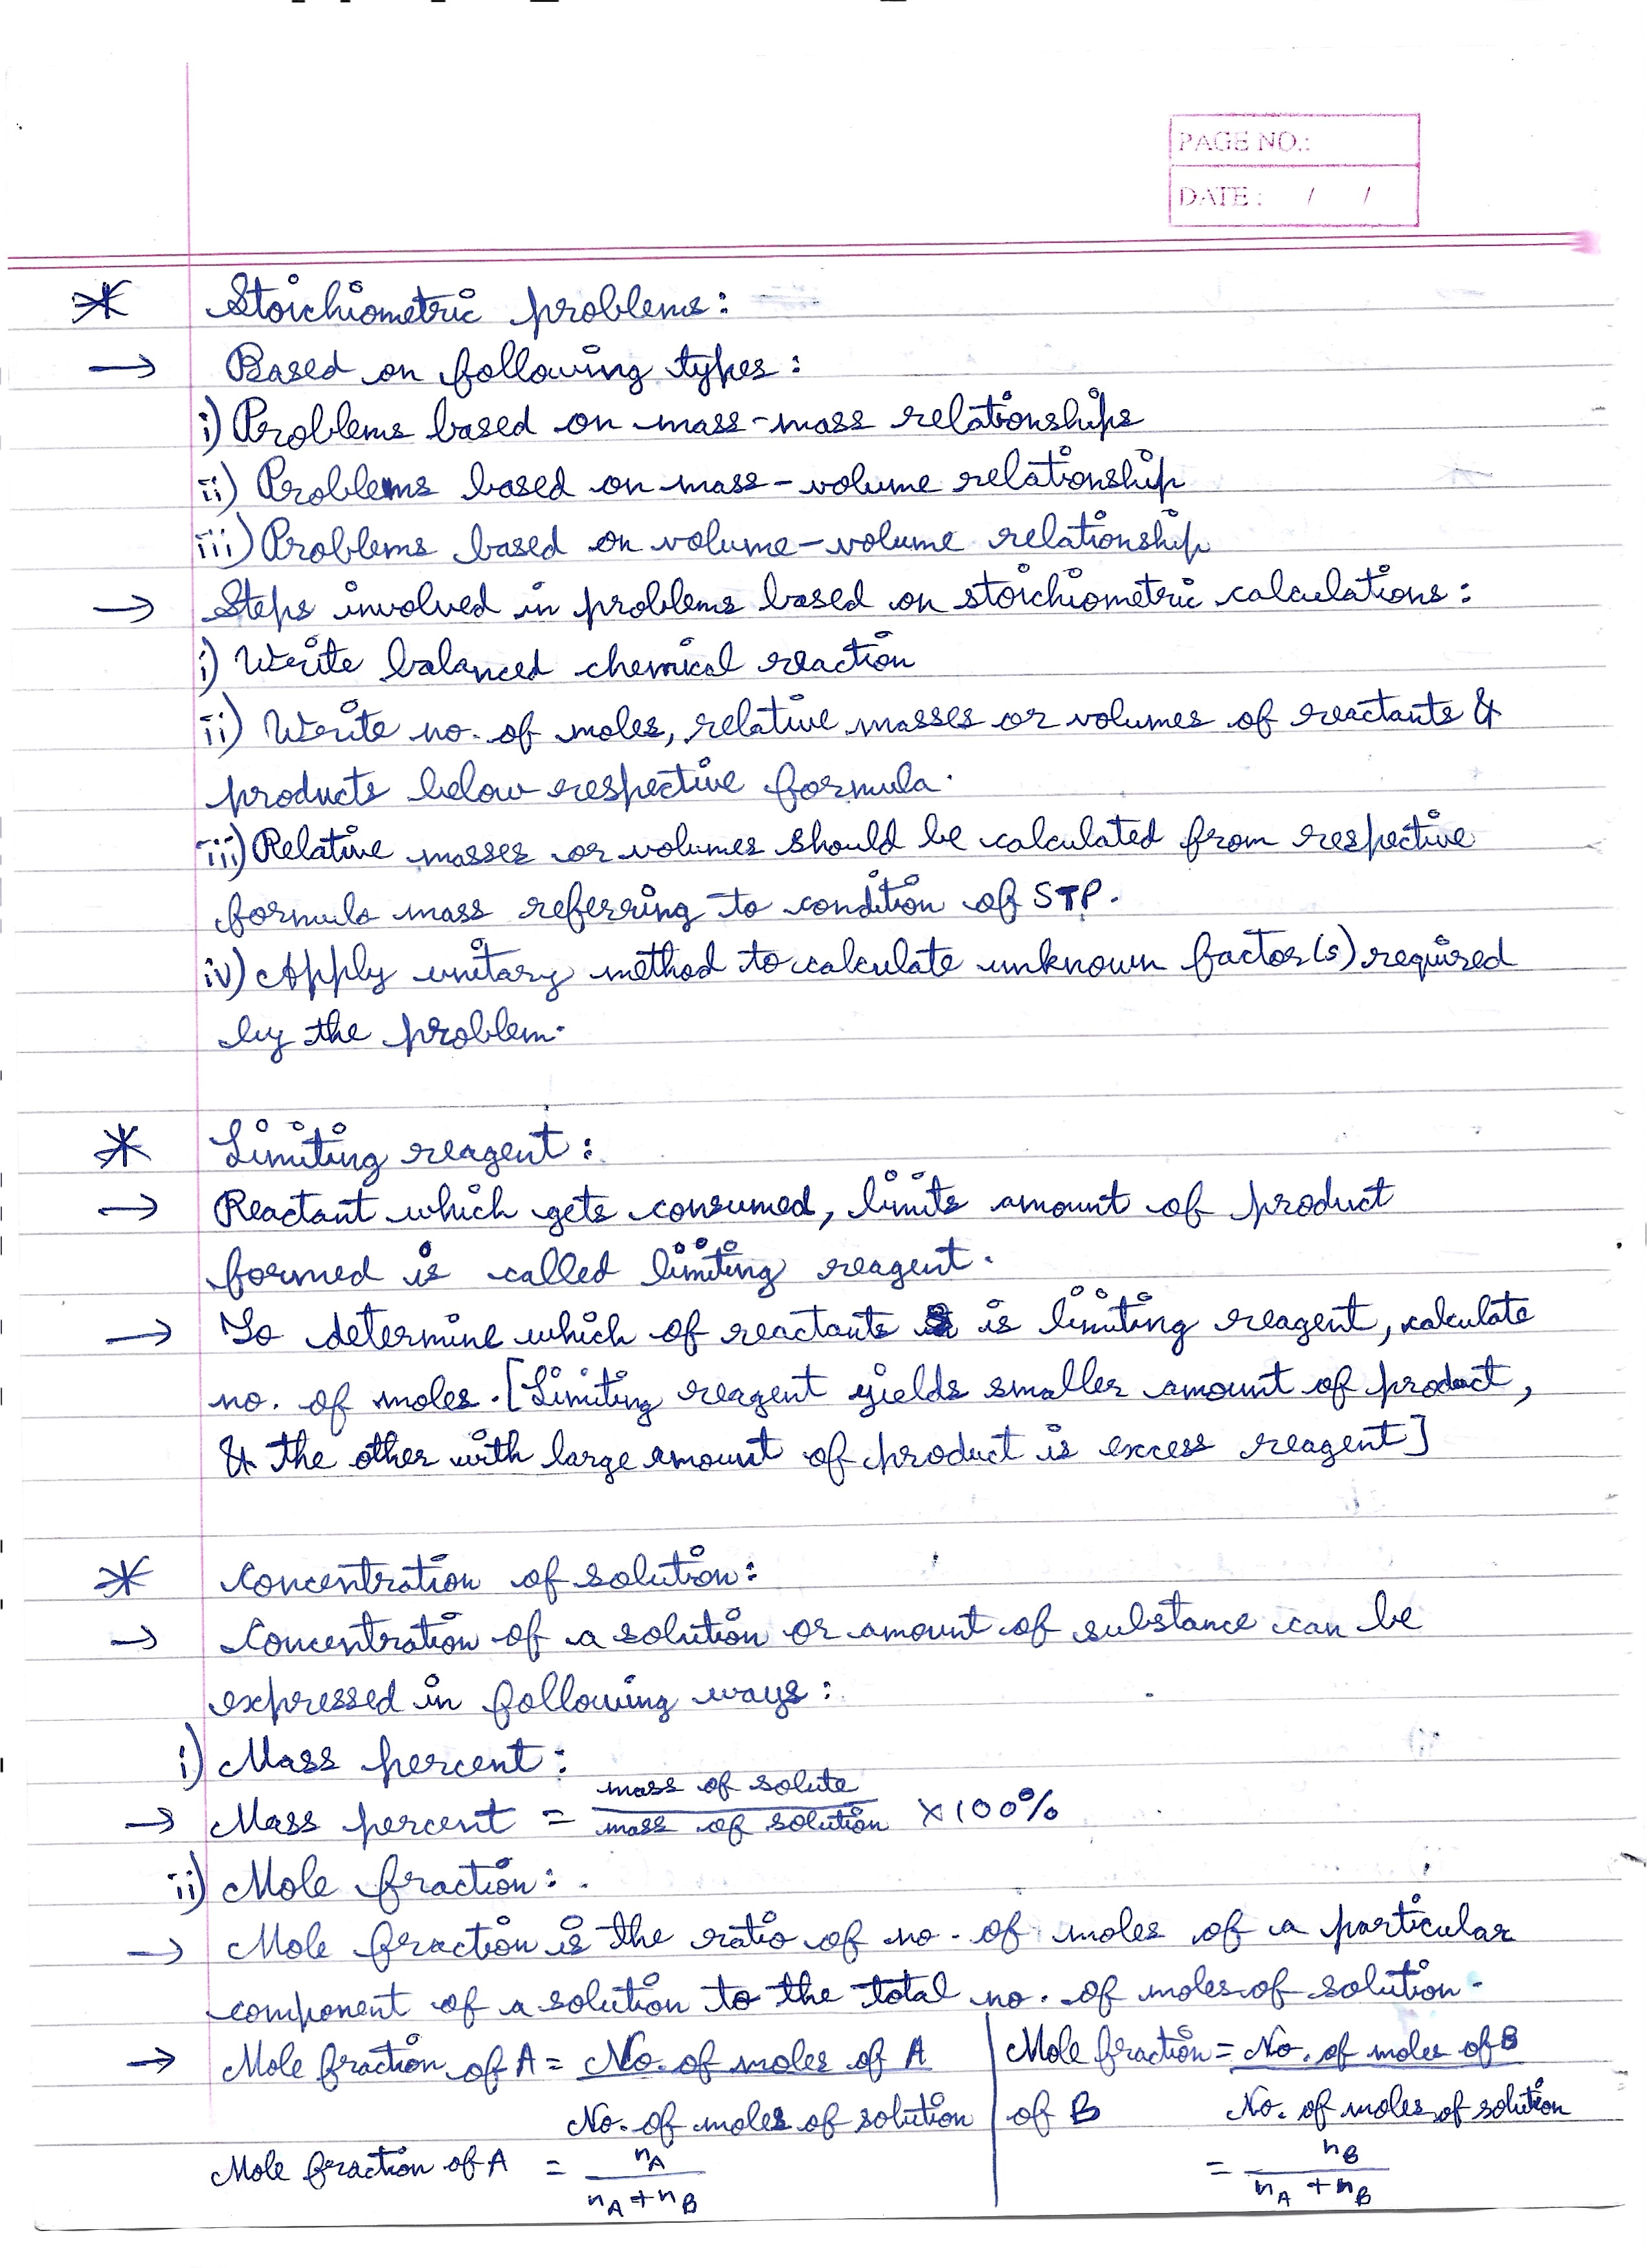 PAGE NO.:
DATE : / /
* Stoichiometric problems:
→ Based on following types:
i) Problems based on mass-mass relationships
ii) Problems based on mass-volume relationship
iii) Problems based on volume-volume relationship
→ Steps involved in problems based on stoichiometric calculations:
i) Write balanced chemical reaction
ii) Write no. of moles, relative masses or volumes of reactants &
products below respective formula.
iii) Relative masses or volumes should be calculated from respective
formula mass referring to condition of STP.
iv) Apply unitary method to calculate unknown factor(s) required
by the problem.
* Limiting reagent:
→ Reactant which gets consumed, limits amount of product
formed is called limiting reagent.
→ To determine which of reactants is limiting reagent, calculate
no. of moles. [Limiting reagent yields smaller amount of product,
& the other with large amount of product is excess reagent]
* Concentration of solution:
→ Concentration of a solution or amount of substance can be
expressed in following ways:
i) Mass percent:
→ Mass percent = mass of solute / mass of solution × 100%
ii) Mole fraction:
→ Mole fraction is the ratio of no. of moles of a particular
component of a solution to the total no. of moles of solution.
→ Mole fraction of A = No. of moles of A | Mole fraction = No. of moles of B
No. of moles of solution | of B No. of moles of solution
Mole fraction of A = nA / nA + nB | = nB / nA + nB